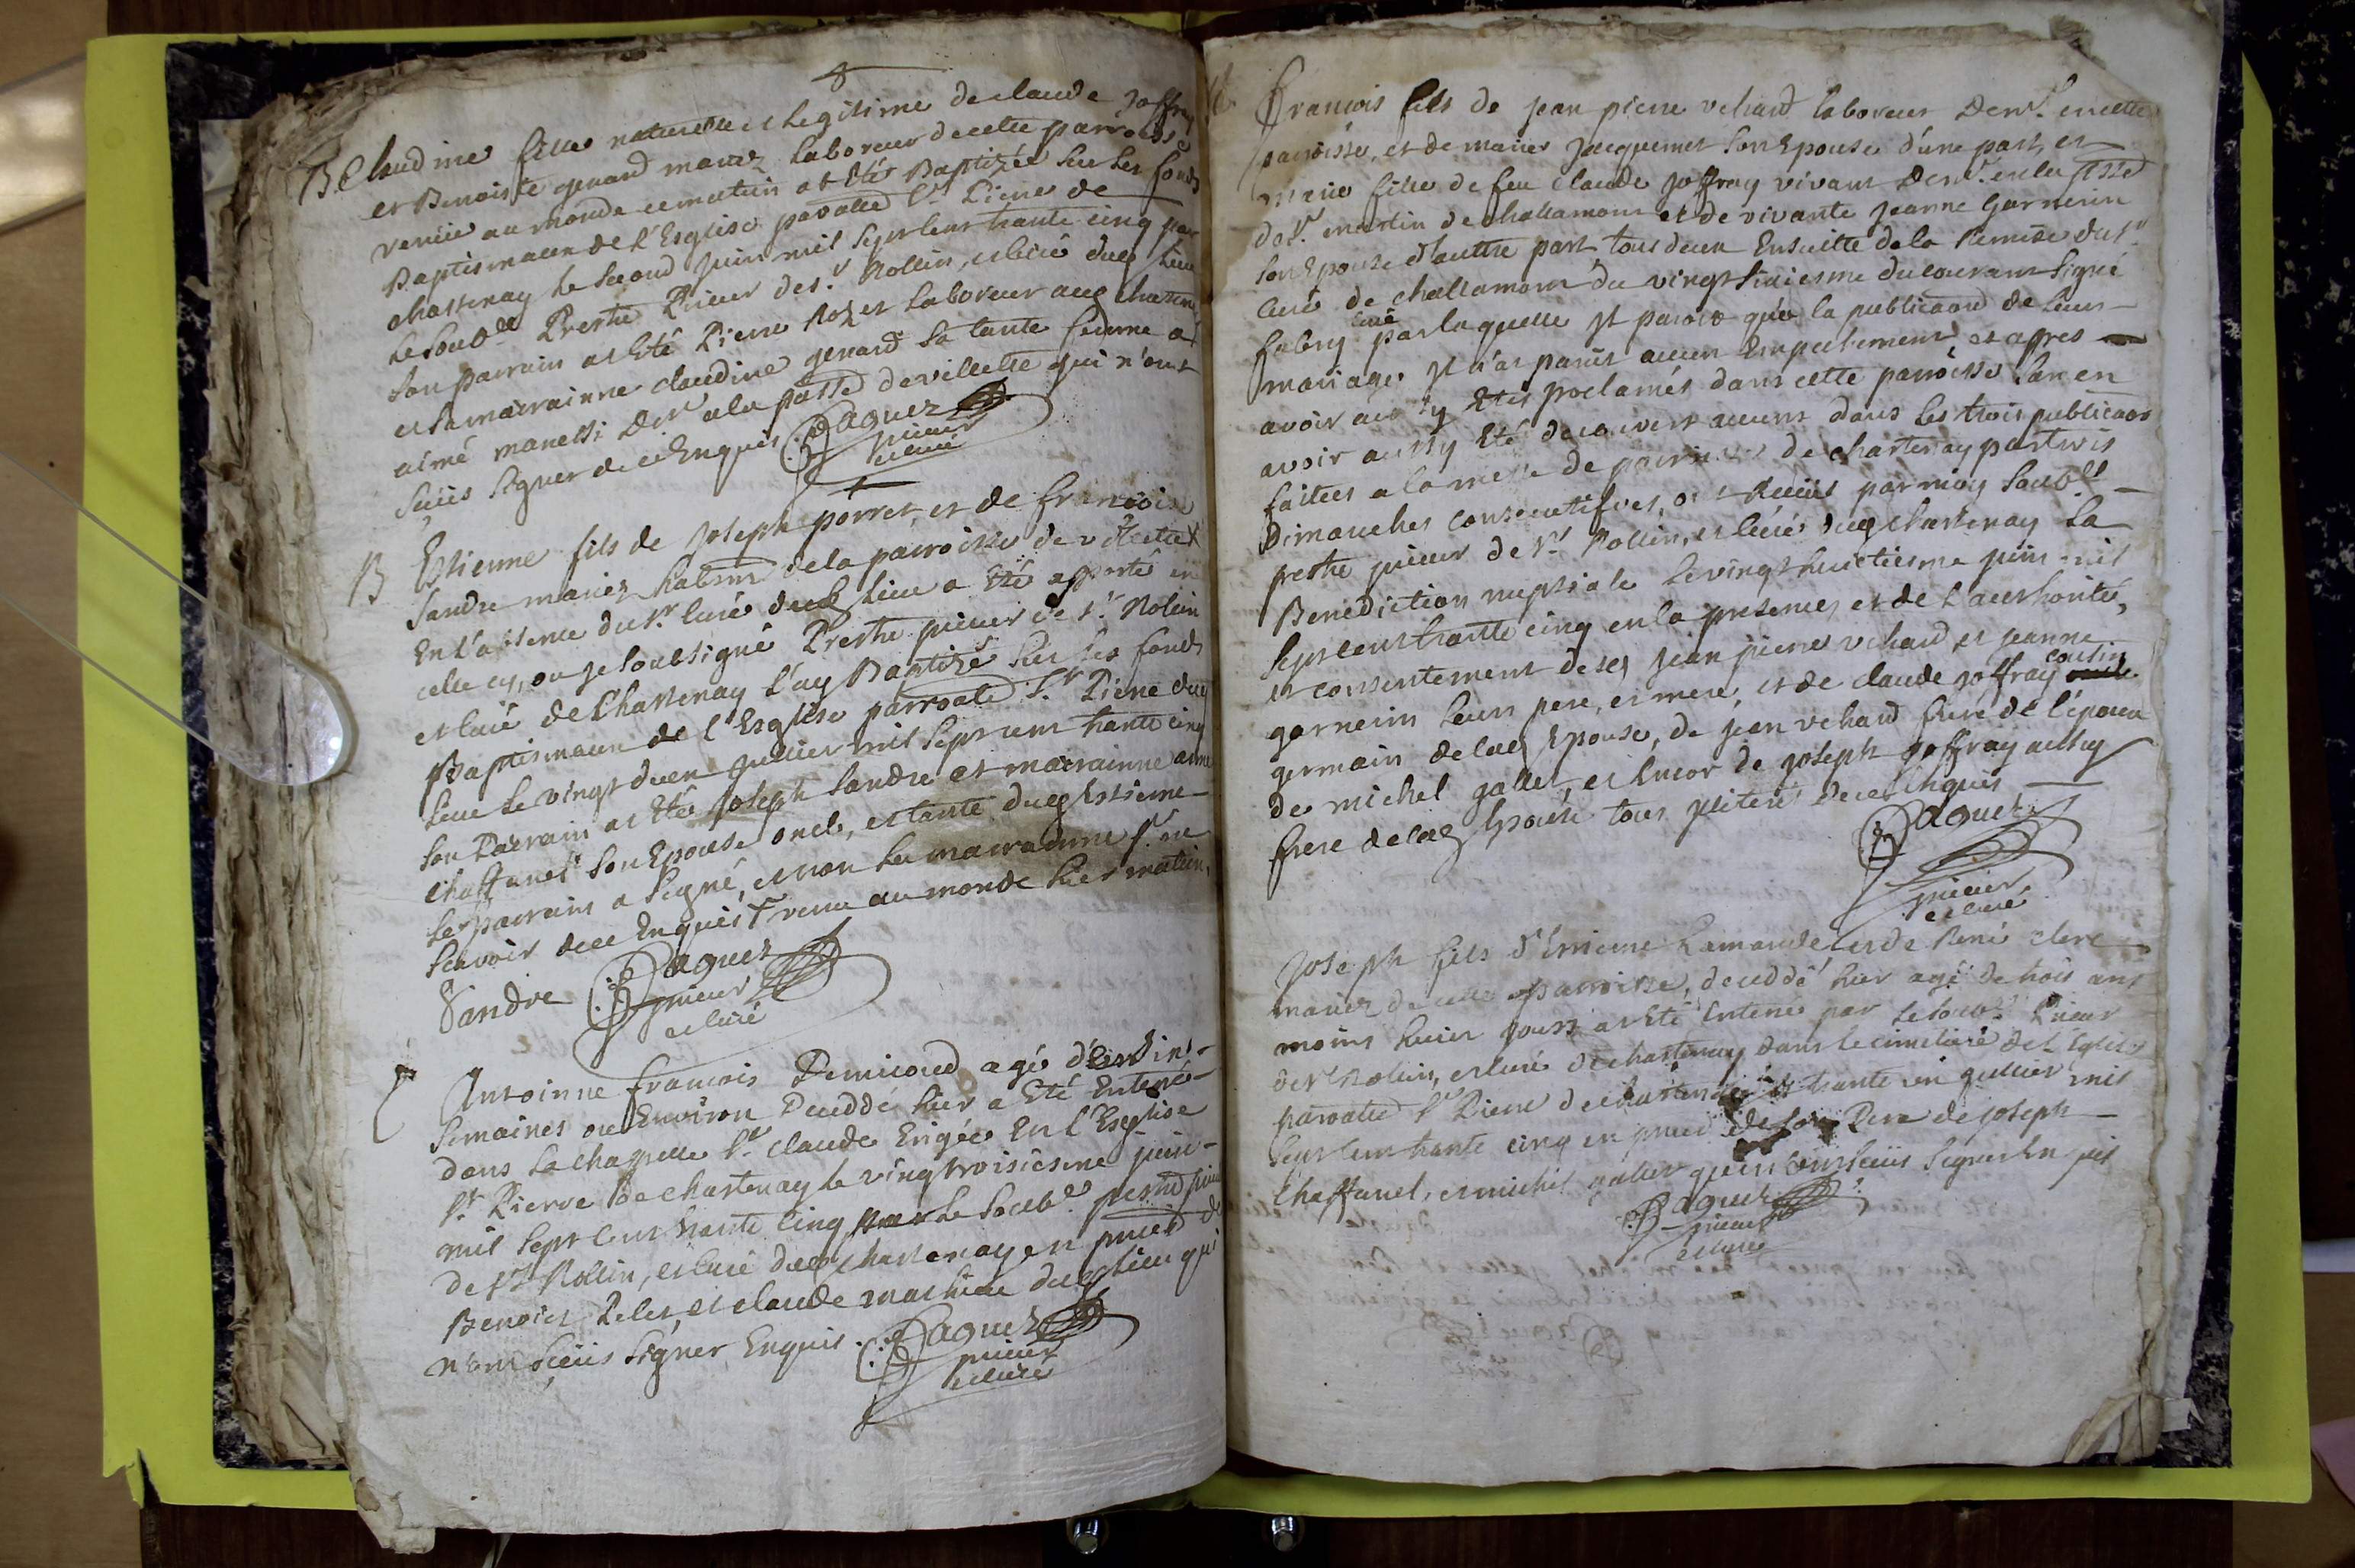 B Claudine fille naturelle et Legitime de claude Joffray
et Benoiste genard mariez Laboreur de cette parroisse
venüe au monde ce matin at Eté Baptizée sur Les fonds
Baptismaux de L'Esglise paroalle St. Pierre de
chastenay le second juin mil sept cent trante cinq par
Le soub.é Prestre Prieur de st. Rollin, et curé dud Lieu
son parrain at Eté Pierre Rozet Laboreur aud chastenay
et sa marrainne claudine genard sa tante femme a
aimé manessi a la de villette qui n'ont
sçüis signer de ce Enquis Paquez
prieur
et curé
B Estienne fils de Joseph porret, et de francoise
Sandre mariez de la parroisse de villette
En L'absence du sr. curé dud Lieu a Eté apporté en
celle cy, ou je soubsigné Prestre prieur de st. Rolein
et curé de Chastenay L'ay Baptizé sur les fonds
Baptismaux de l'Esglise parroale St. Pierre dud
Lieu Le vingt deux juillier mil sept cent trante cinq
son Parrain at Eté Joseph Sandre et marrainne anne
chaffanel son Epouse oncle, et tante dud Estienne
Le parrain a signé, et non La marrainne pr. ne
sçavoir de ce Enquis venu au monde hier matin,
Sandre Paquez
prieur
et curé
Antoinne francois Demicoud agé d'
semaines ou Environ Decedde hier a Eté Enterré
dans La chapelle st. claude Erigée En l'Esglise
st. Pierre de chastenay le vingt troisiesme juin
mil sept cent trante cinq par Le soub.é prestre prieur
de st. Rollin, et curé dud chastenay en de
Benoict Pelet, et claude mathieu dud Lieu qui
n'ont sçüis signer Enquis. Paquez
prieur
et curé
Francois fils de jean pierre vehard Laboreur en cette
parroisse, et de mariee Jacquemet son Epouse d'une part, et
marie fille de feu claude Joffray vivant en la
de st. martin de challamont et de vivante jeanne Garnerin
son Epouse d'auttre part, tous deux Ensuitte de la Remise du sr.
curé de challamont du vingt sixiesme du courant signé
fabry curé par laquelle jl paroit qué la publicaon de Leur
mariage jl n'at parüt aucun Empechement, et apres
avoir aussy Etés proclamés dans cette parroisse san en
avoir aussy Eté decouvert aucuns dans Les trois publicaons
faittes a la messe de parroisse de chastenay par trois
Dimanches consecutifves, ont Receües par moy soub.né
prestre prieur de st. Rollin, et curé dud chastenay La
Benediction nuptiale Le vingt huictiesme juin mil
sept cent trante cinq en la presence, et de l'authorité,
et consentement desd jean pierre vehard et jeanne
garnerin Leurs pere, et mere, et de claude joffray cousin
germain de lad Epouse, de jean vehard frere de l'époux
de michel gallet, et Encor de joseph joffray aussy
frere de lad Epouse tous jlliterés de ce Enquis
Paquez
prieur,
et curé
Joseph fils d'Ennieme Lamande et de René clerc
mariez de cette parroisse, decedde hier agé de trois ans
moins huict jours at Eté Enterré par Le soub.é Prieur
de st. Rolein, et curé de chastenay dans le cimitiere de L'Eglise
parroalle st. Pierre de chastenay le trante un juillier mil
sept cent trante cinq en de son Pere de joseph
Chaffanel, et michel gallet qui n'ont sçüis signer En quis
Paquez
prieur
et curé